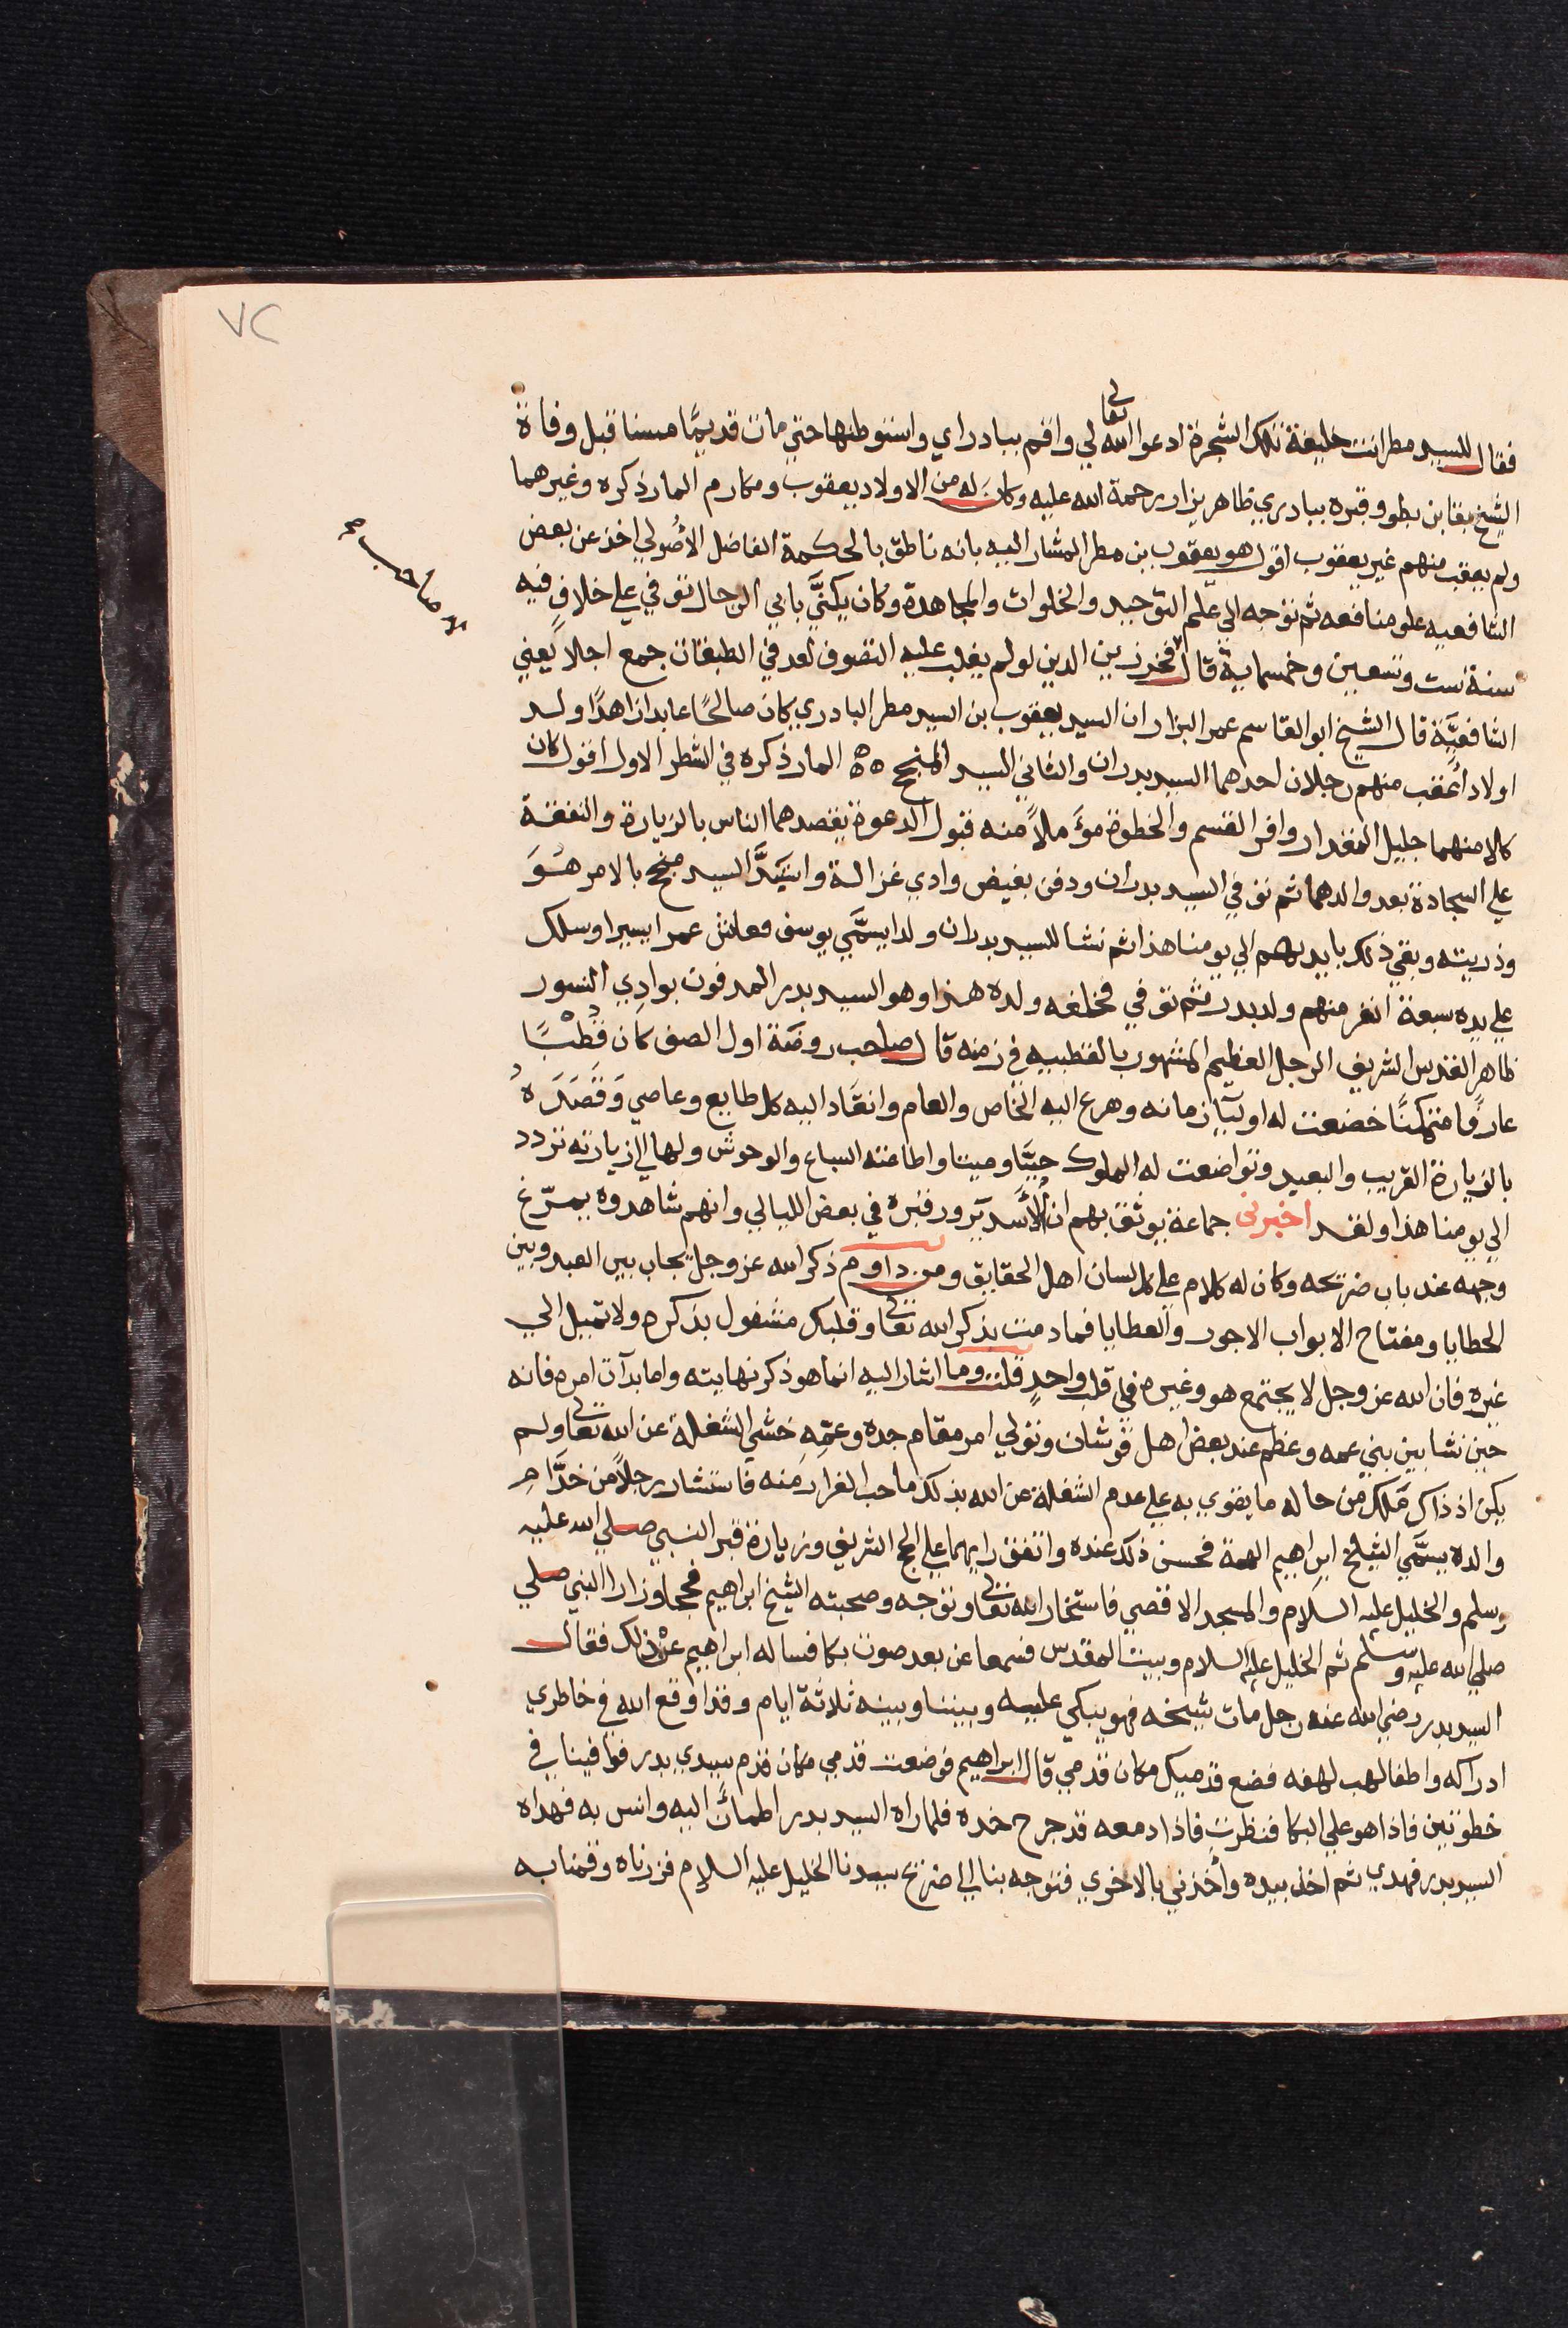 ٧٢
فقال للسيد مطر انت خليفة تلك الشجرة ادعوا الله تعالى لي واقم ببادراي واستوطنها حتي مات قديمًا مسنا قبل وفاة
الشيخ بقا بن بطو وقبره ببادري ظاهر يزار رحمة الله عليه وكان له من الاولاد يعقوب ومكارم المار ذكره وغيرهما
ولم يعقب منهم غير يعقوب اقول هو يعقوب بن مطر المشار اليه بانه ناطق بالحكمة الفاضل الأصُولي اخذ عن بعض
الشافعيه علو منافعه ثم توجه الي علم التوحيد والخلوات والمجاهدة وكان يكنَّي بابي الرجال توفي علي خلافٍ فيه
سنة ست وتسعين وخمسماية قال فخر زين الدين لو لم يغلب عليه التصوف لعد في الطبقات جمع اجلا يعني
صاحب صح
الشافعيَّة قال الشيخ ابو القاسم عمر البزار ان السيد يعقوب بن السيد مطر البادري كان صالحًا عابدا زاهدًا ولد
اولاد أعقب منهم رجلان احدهما السيد بدران والثاني السيد المنجح ٥٥ المار ذكره في الشطر الاول اقول كان
كالا منهما جليل المقدار وافر القسم والخطوة مؤَملاً منه قبول الدعوة يقصدهما الناس بالزيارة والنفقة
علي السجادة بعد والدهما ثم توفي السيد بدران ودفن بغيض وادي غزالة واستبدَّ السيد منجح بالامر هُوَ
وذريته وبقي ذلك بايديهم الي يومنا هذا ثم نشا للسيد بدران ولدا يسمَّي يوسف فعاش عمرا يسيرا وسلك
علي يده سبعة انفر منهم ولد بدر ثم توفي فخلفه ولده هذا وهو السيد بدر المدفون بوادي النسور
ظاهر القدس الشريف الرجل العظيم المشهور بالقطبيه في زمنه قال صاحب روضة اول الصف كان قُطْبًا
عارفًا متمكنًا خضعت له اوليآء زمانه وهرع اليه الخاص والعام وانقاد اليه كل طايع وعاصي وَقَصَدَهُ
بالزيارة القريب والبعيد وتواضعت له الملوك حيًّا وميتا واطاعته السباع والوحوش ولها الي زيارته تردد
الي يومنا هذا ولقد اخبرني جماعة يوثق بهم ان الأسد يزور قبره في بعض الليالي وانهم شاهدوه يمرّغ
وجهه عند باب ضريحه وكان له كلام علي لسان اهل الحقايق ومن داوم ذكر الله عز وجل يجاب بين العبد وبين
الخطايا ومفتاح الابواب الاجور والعطايا فما دمت بذكر الله تعالى وقلبك مشغول بذكره ولا تميل الي
غيره فان الله عز وجل لا يجتمع هو وغيره في قلب واحدٍ قلت وما اشار اليه انما هو ذكر نهايته واما بدآت امره فانه
حين نشا بين بني عمه وعظم عند بعض اهل قوشان وتولي امر مقام جده وعمّه خشي الشغلة عن الله تعالى ولم
يكن اذ ذاك مَلك من حاله ما يقوي به علي عدم الشغلة عن الله بذلك فاحب الفرار منه فاستشار رجلاً من خدَّامِ
والده يسمَّي الشيخ ابراهيم الهمة فحسن ذلك عنده واتفق رايهما علي الحج الشريف وزيارة قبر النبي صلي الله عليه
وسلم والخليل عليه السلام والمسجد الاقصي فاستخار الله تعالى وتوجه وصحبته الشيخ ابراهيم فحجا وزارا النبي صلي
صلي الله عليه وسلم ثم الخليل عليه السلام وبيت المقدس فسمعا عن بعد صوت بكا فساله ابراهيم عن ذلك فقال
السيد بدر رضي الله عنه رجل مات شيخه فهو يبكي عليه وبيننا وبينه ثلاثة ايام وقد اوقع الله في خاطري
ادراكه واطفا لهب لهفه فضع قدميك مكان قدمي قال ابراهيم فوضعت قدمي مكان قدم سيدي بدر فوافينا في
خطوتين فاذا هو علي البكا فنظرت فاذا دمعه قد جرح خده فلما راه السيد بدر اطمأنَّ اليه وانس به فهداه
السيد بدر فهدي ثم اخذ بيده وأخذني بالاخري فتوجه بنا الي ضريح سيدنا الخليل عليه السلام فزرناه وقمنا به